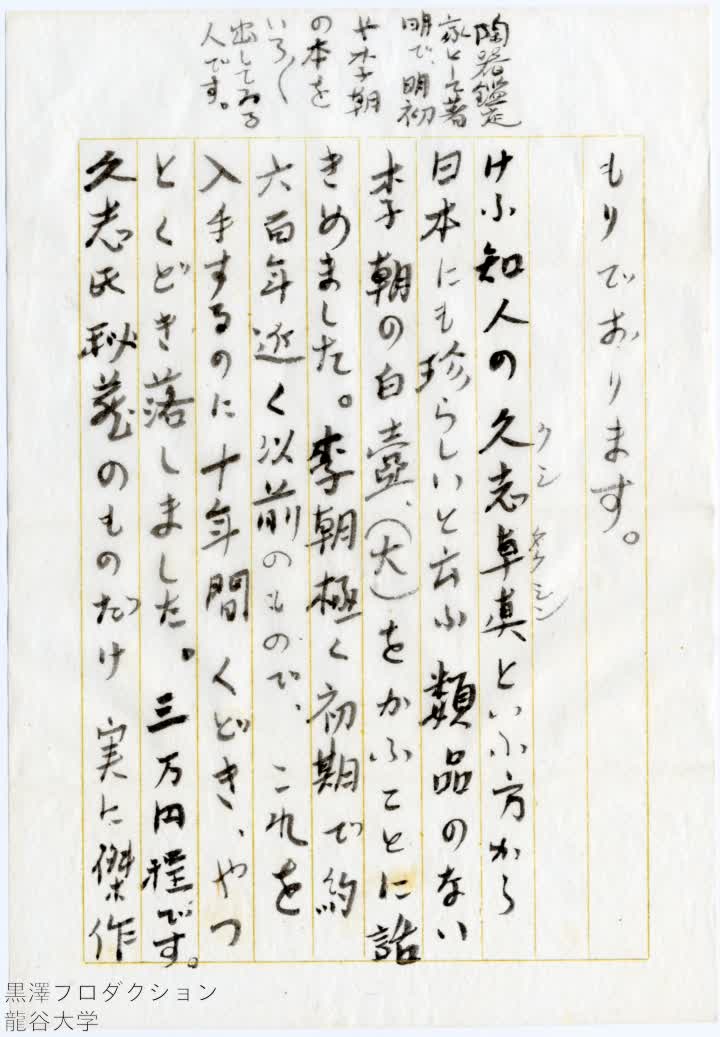 陶器鑑定
家として著
明で、明初
や李朝
の本を
いろ〳〵
出してゐる
人です。
もりでおります。
けふ知人の久志卓真といふ方から
クシ タクシン
日本にも珍らしいと云ふ類品のない
李朝の白壺、(大)をかふことに話
きめました。李朝極く初期で約
六百年近く以前のもので、これを
入手するのに十年間くどき、やつ
とくどき落しました。三万円程です。
久志氏秘蔵のものだけ 実に傑作
黒澤プロダクション
龍谷大学